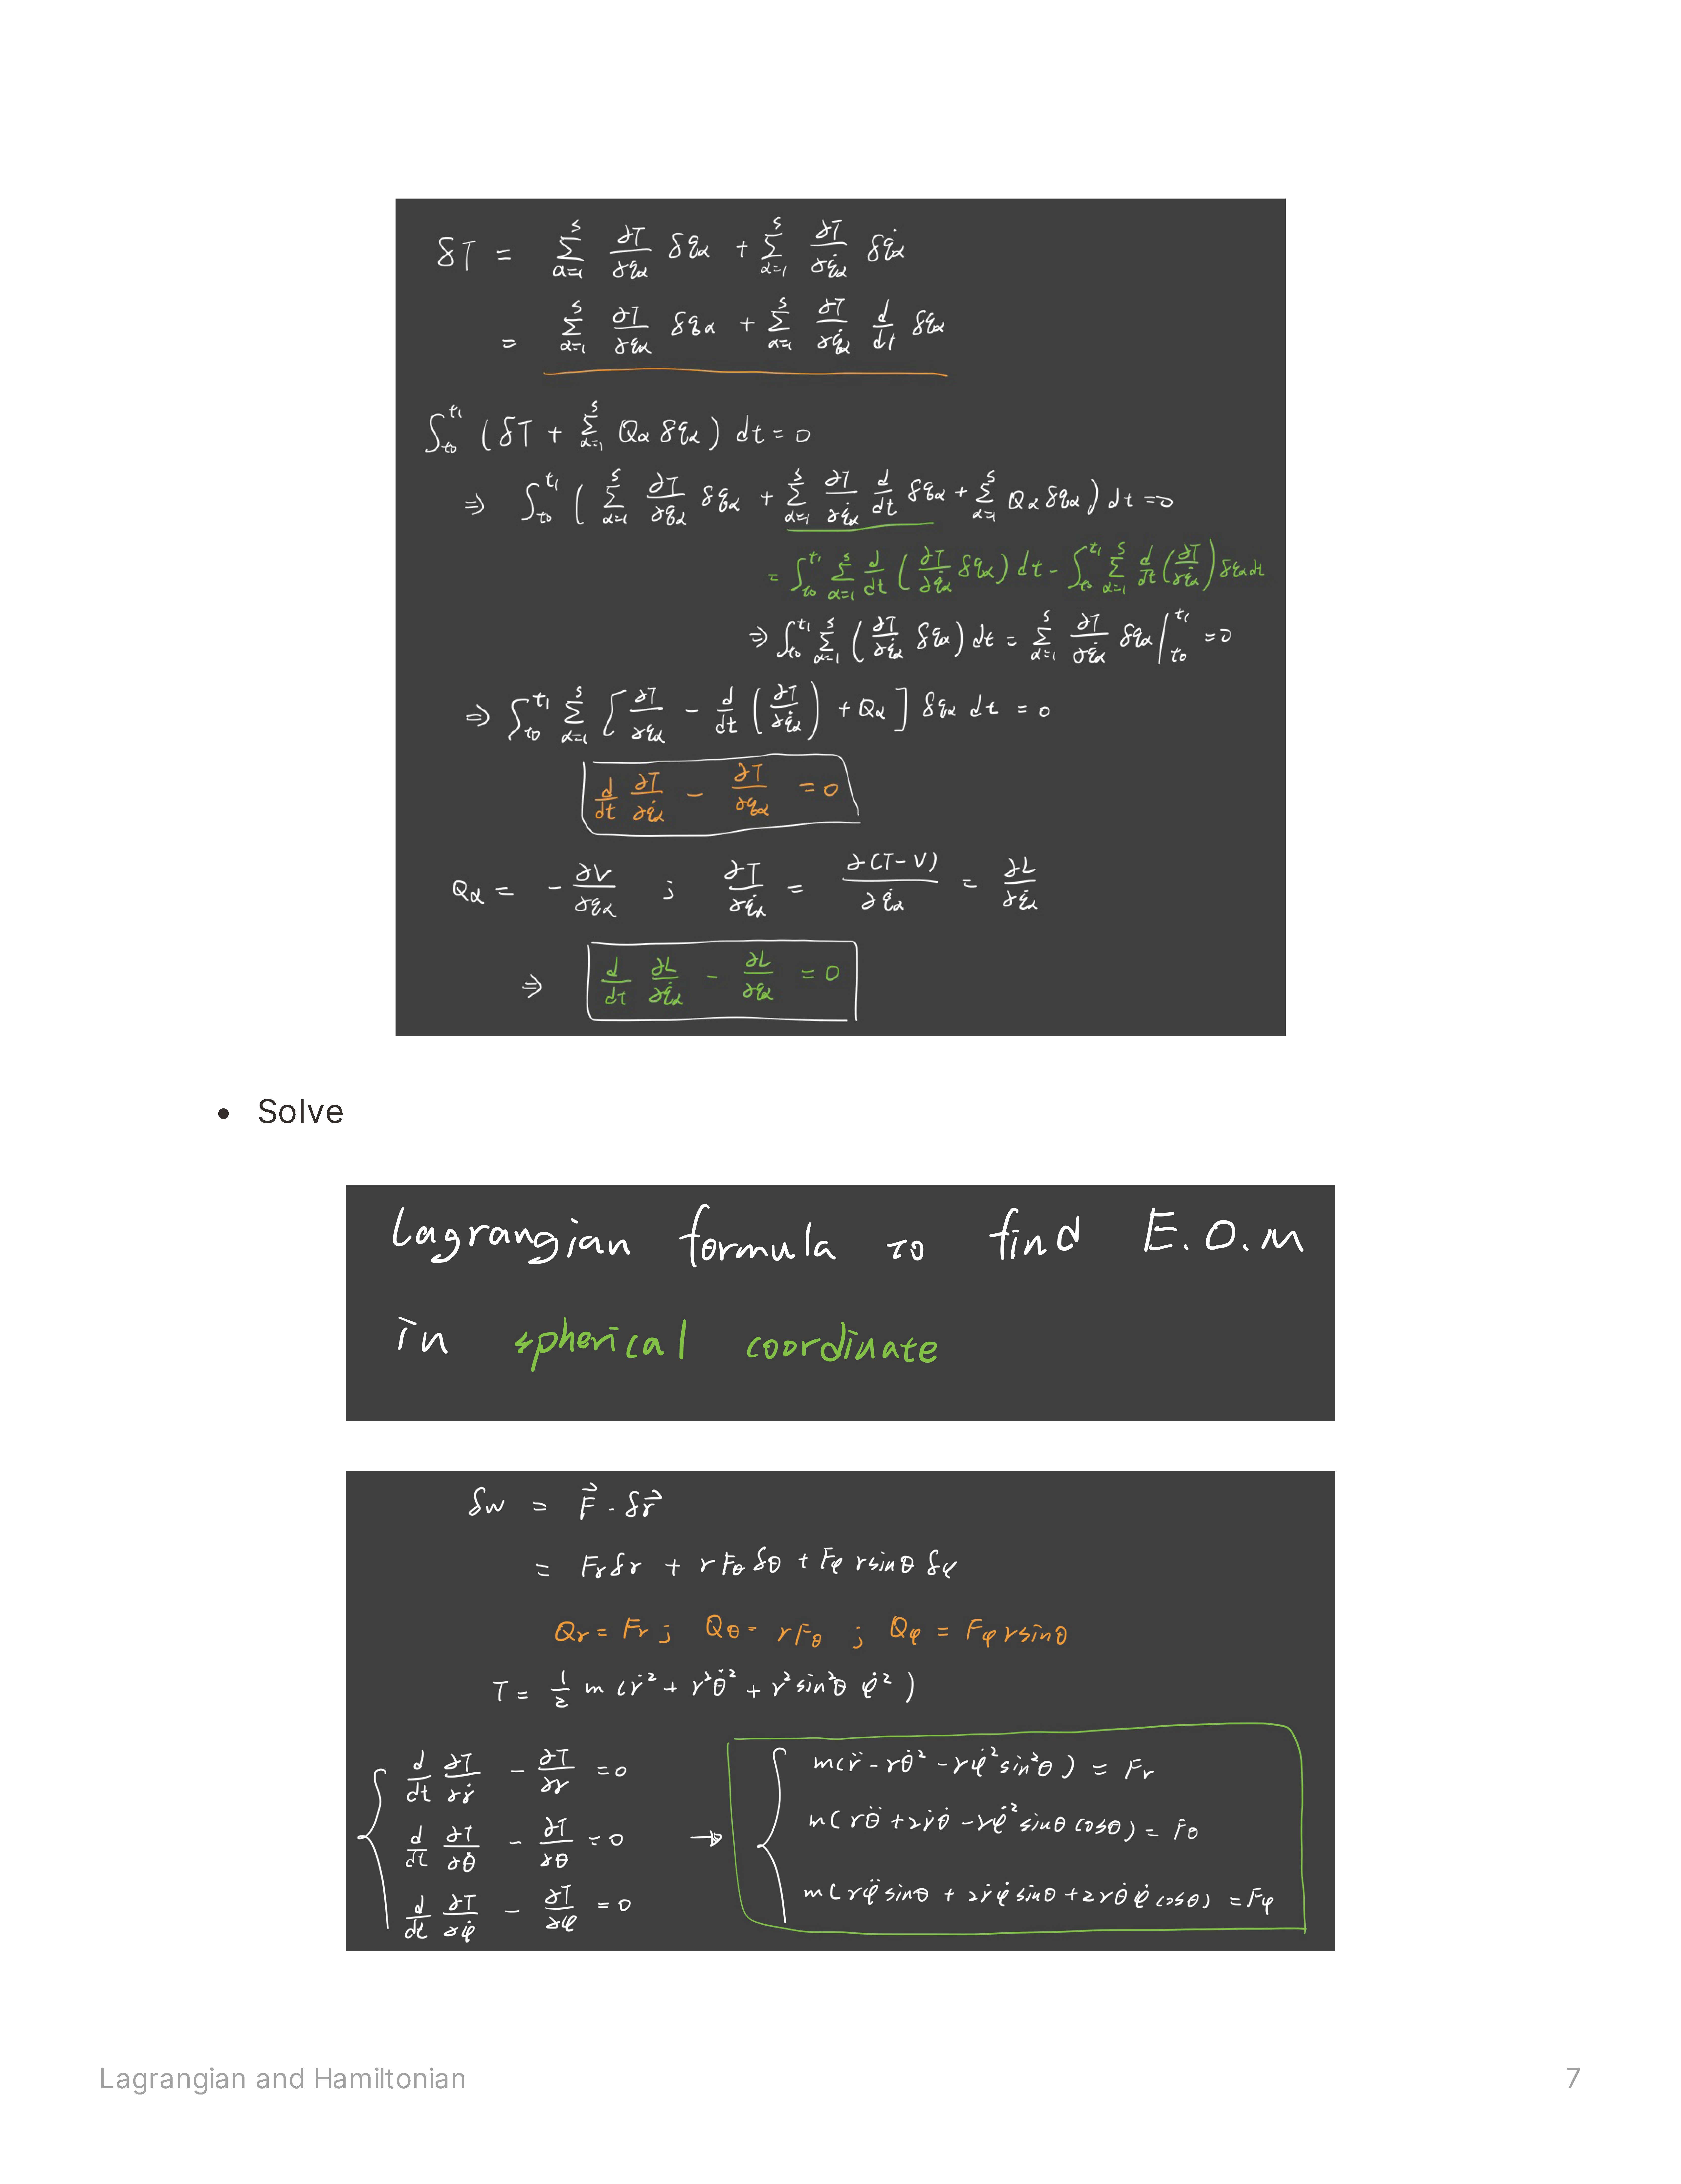 δT = ∑_{α=1}^{s} ∂T/∂q_α δq_α + ∑_{α=1}^{s} ∂T/∂q̇_α δq̇_α
= ∑_{α=1}^{s} ∂T/∂q_α δq_α + ∑_{α=1}^{s} ∂T/∂q̇_α d/dt δq_α
∫_{t₀}^{t₁} (δT + ∑_{α=1}^{s} Q_α δq_α) dt = 0
⇒ ∫_{t₀}^{t₁} (∑_{α=1}^{s} ∂T/∂q_α δq_α + ∑_{α=1}^{s} ∂T/∂q̇_α d/dt δq_α + ∑_{α=1}^{s} Q_α δq_α) dt = 0
= ∫_{t₀}^{t₁} ∑_{α=1}^{s} d/dt (∂T/∂q̇_α δq_α) dt - ∫_{t₀}^{t₁} ∑_{α=1}^{s} d/dt (∂T/∂q̇_α) δq_α dt
⇒ ∫_{t₀}^{t₁} ∑_{α=1}^{s} (∂T/∂q̇_α δq_α) dt = ∑_{α=1}^{s} ∂T/∂q̇_α δq_α |_{t₀}^{t₁} = 0
⇒ ∫_{t₀}^{t₁} ∑_{α=1}^{s} [∂T/∂q_α - d/dt (∂T/∂q̇_α) + Q_α] δq_α dt = 0
d/dt ∂T/∂q̇_α - ∂T/∂q_α = 0
Q_α = - ∂V/∂q_α ; ∂T/∂q̇_α = ∂(T-V)/∂q̇_α = ∂L/∂q̇_α
⇒ d/dt ∂L/∂q̇_α - ∂L/∂q_α = 0
• Solve
Lagrangian formula to find E.O.M
in spherical coordinate
δw = F⃗ · δr⃗
= F_r δr + r F_θ δθ + F_φ r sinθ δφ
Q_r = F_r ; Q_θ = rF_θ ; Q_φ = F_φ r sinθ
T = 1/2 m (ṙ² + r²θ̇² + r² sin²θ φ̇²)
d/dt ∂T/∂ṙ - ∂T/∂r = 0
d/dt ∂T/∂θ̇ - ∂T/∂θ = 0
d/dt ∂T/∂φ̇ - ∂T/∂φ = 0
→
m(r̈ - rθ̇² - rφ̇² sin²θ) = F_r
m(rθ̈ + 2ṙθ̇ - rφ̇² sinθ cosθ) = F_θ
m(rφ̈ sinθ + 2ṙφ̇ sinθ + 2rθ̇φ̇ cosθ) = F_φ
Lagrangian and Hamiltonian
7